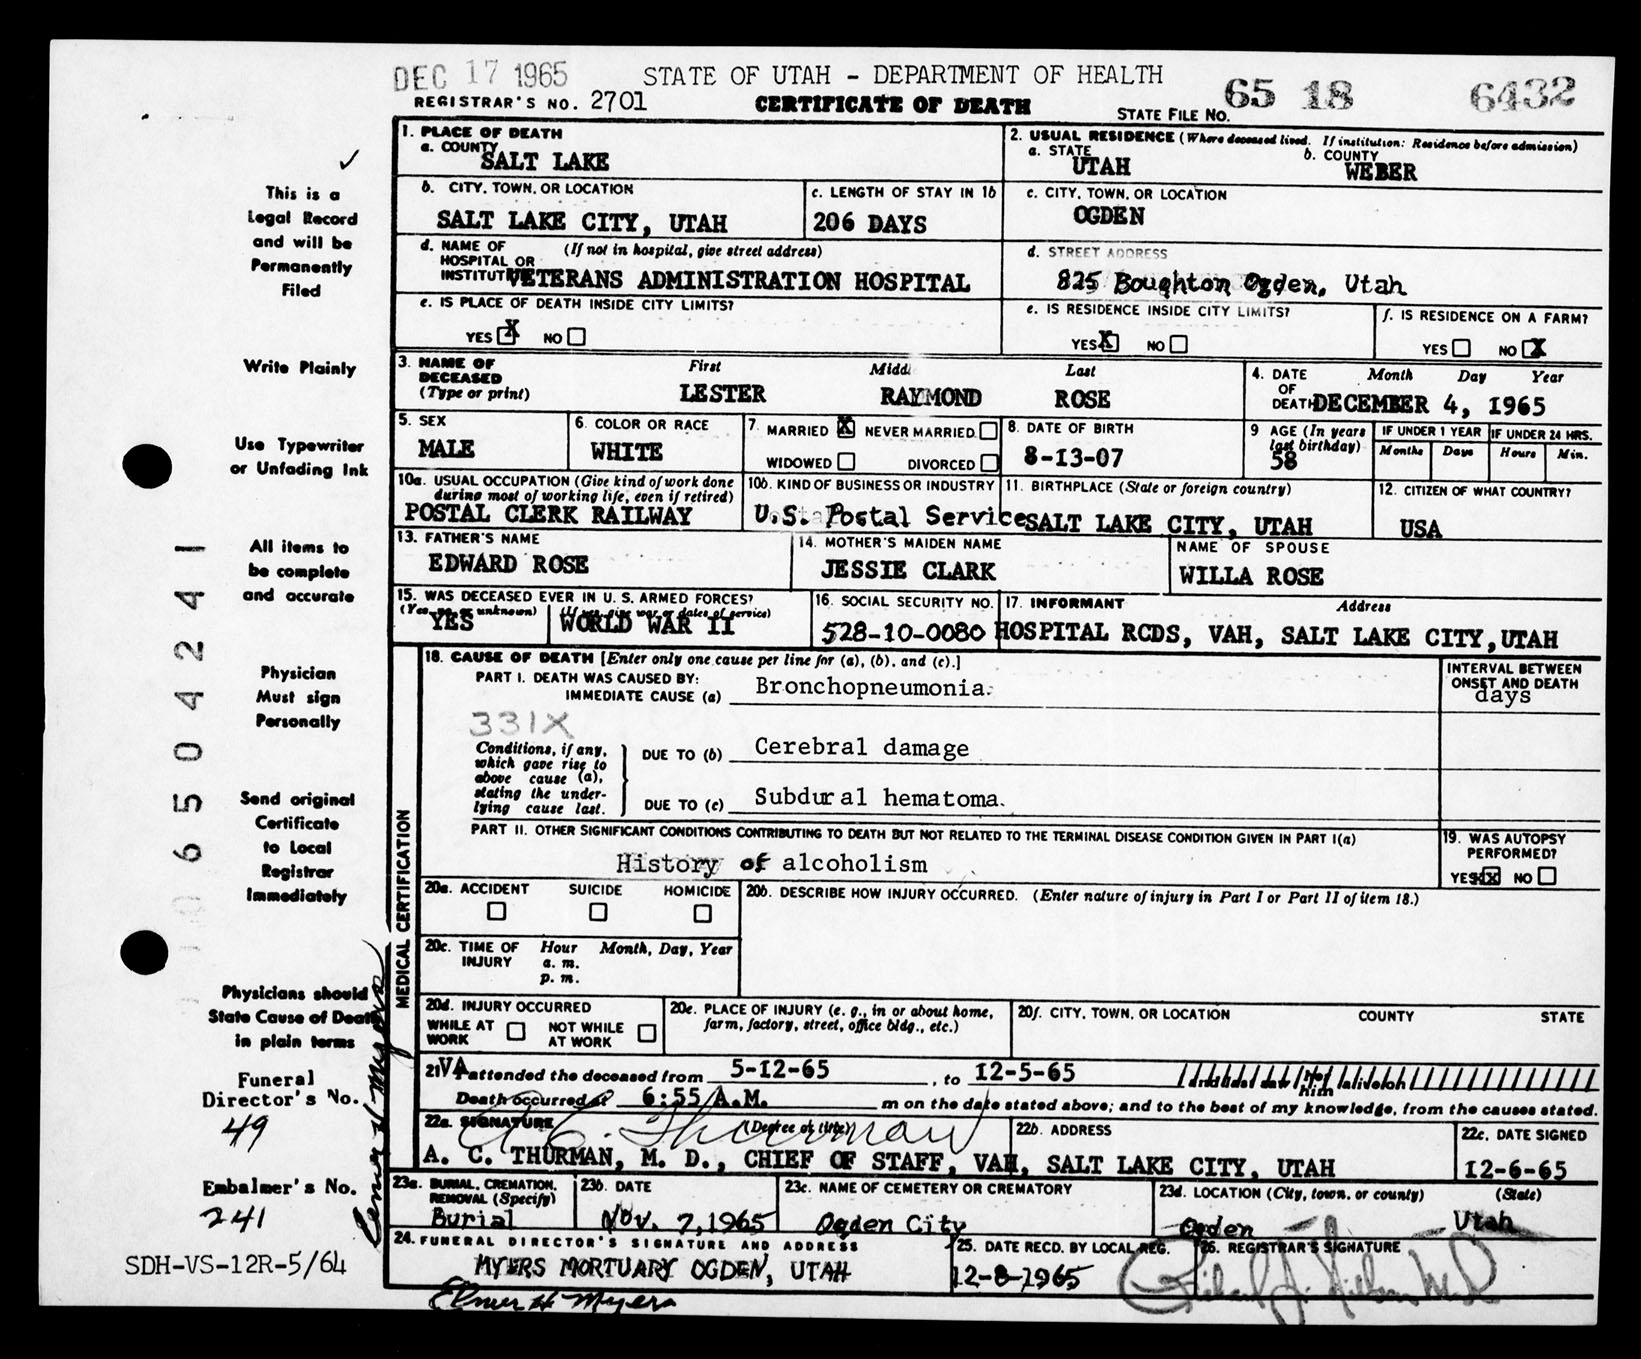 DEC 17 1965
STATE OF UTAH - DEPARTMENT OF HEALTH
65 18 6432
REGISTRAR'S NO. 2701
CERTIFICATE OF DEATH
STATE FILE NO.
1. PLACE OF DEATH
a. COUNTY
SALT LAKE
2. USUAL RESIDENCE (Where deceased lived. If institution: Residence before admission)
a. STATE
UTAH
b. COUNTY
WEBER
b. CITY, TOWN, OR LOCATION
SALT LAKE CITY, UTAH
c. LENGTH OF STAY IN 1b
206 DAYS
c. CITY, TOWN, OR LOCATION
OGDEN
d. NAME OF HOSPITAL OR INSTITUTION (If not in hospital, give street address)
VETERANS ADMINISTRATION HOSPITAL
d. STREET ADDRESS
825 Boughton Ogden, Utah
e. IS PLACE OF DEATH INSIDE CITY LIMITS?
YES X NO
e. IS RESIDENCE INSIDE CITY LIMITS?
YES X NO
f. IS RESIDENCE ON A FARM?
YES NO X
3. NAME OF DECEASED (Type or print)
First Middl Last
LESTER RAYMOND ROSE
4. DATE OF DEATH Month Day Year
DECEMBER 4, 1965
5. SEX
MALE
6. COLOR OR RACE
WHITE
7. MARRIED X NEVER MARRIED
WIDOWED DIVORCED
8. DATE OF BIRTH
8-13-07
9 AGE (In years last birthday)
58
IF UNDER 1 YEAR
Months Days
IF UNDER 24 HRS.
Hours Min.
10a. USUAL OCCUPATION (Give kind of work done during most of working life, even if retired)
POSTAL CLERK RAILWAY
10b. KIND OF BUSINESS OR INDUSTRY
U.S. Postal Service
11. BIRTHPLACE (State or foreign country)
SALT LAKE CITY, UTAH
12. CITIZEN OF WHAT COUNTRY?
USA
13. FATHER'S NAME
EDWARD ROSE
14. MOTHER'S MAIDEN NAME
JESSIE CLARK
NAME OF SPOUSE
WILLA ROSE
15. WAS DECEASED EVER IN U. S. ARMED FORCES?
(Yes, no, or unknown) (If yes, give war or dates of service)
YES WORLD WAR II
16. SOCIAL SECURITY NO.
528-10-0080
17. INFORMANT Address
HOSPITAL RCDS, VAH, SALT LAKE CITY, UTAH
MEDICAL CERTIFICATION
18. CAUSE OF DEATH [Enter only one cause per line for (a), (b), and (c).]
PART I. DEATH WAS CAUSED BY:
IMMEDIATE CAUSE (a) Bronchopneumonia.
INTERVAL BETWEEN ONSET AND DEATH
days
331X
Conditions, if any, which gave rise to above cause (a), stating the underlying cause last.
DUE TO (b) Cerebral damage
DUE TO (c) Subdural hematoma.
PART II. OTHER SIGNIFICANT CONDITIONS CONTRIBUTING TO DEATH BUT NOT RELATED TO THE TERMINAL DISEASE CONDITION GIVEN IN PART I(a)
History of alcoholism
19. WAS AUTOPSY PERFORMED?
YES XX NO
20a. ACCIDENT SUICIDE HOMICIDE
20b. DESCRIBE HOW INJURY OCCURRED. (Enter nature of injury in Part I or Part II of item 18.)
20c. TIME OF INJURY Hour Month, Day, Year
a. m.
p. m.
20d. INJURY OCCURRED
WHILE AT WORK NOT WHILE AT WORK
20e. PLACE OF INJURY (e. g., in or about home, farm, factory, street, office bldg., etc.)
20f. CITY, TOWN, OR LOCATION COUNTY STATE
21 VA attended the deceased from 5-12-65, to 12-5-65 and last saw her him alive on
Death occurred at 6:55 A.M. m on the date stated above; and to the best of my knowledge, from the causes stated.
22a. SIGNATURE (Degree or title)
A C. Thurman
A. C. THURMAN, M. D., CHIEF OF STAFF, VAH, SALT LAKE CITY, UTAH
22b. ADDRESS
22c. DATE SIGNED
12-6-65
23a. BURIAL, CREMATION, REMOVAL (Specify)
Burial
23b. DATE
Nov. 7, 1965
23c. NAME OF CEMETERY OR CREMATORY
Ogden City
23d. LOCATION (City, town, or county) (State)
Ogden Utah
24. FUNERAL DIRECTOR'S SIGNATURE AND ADDRESS
MYERS MORTUARY OGDEN, UTAH
Elmer H Myers
25. DATE RECD. BY LOCAL REG.
12-8-1965
26. REGISTRAR'S SIGNATURE
This is a
Legal Record
and will be
Permanently
Filed
Write Plainly
Use Typewriter
or Unfading Ink
All items to
be complete
and accurate
Physician
Must sign
Personally
Send original
Certificate
to Local
Registrar
Immediately
Physicians should
State Cause of Death
in plain terms
Funeral
Director's No.
49
Embalmer's No.
241
SDH-VS-12R-5/64
6504241